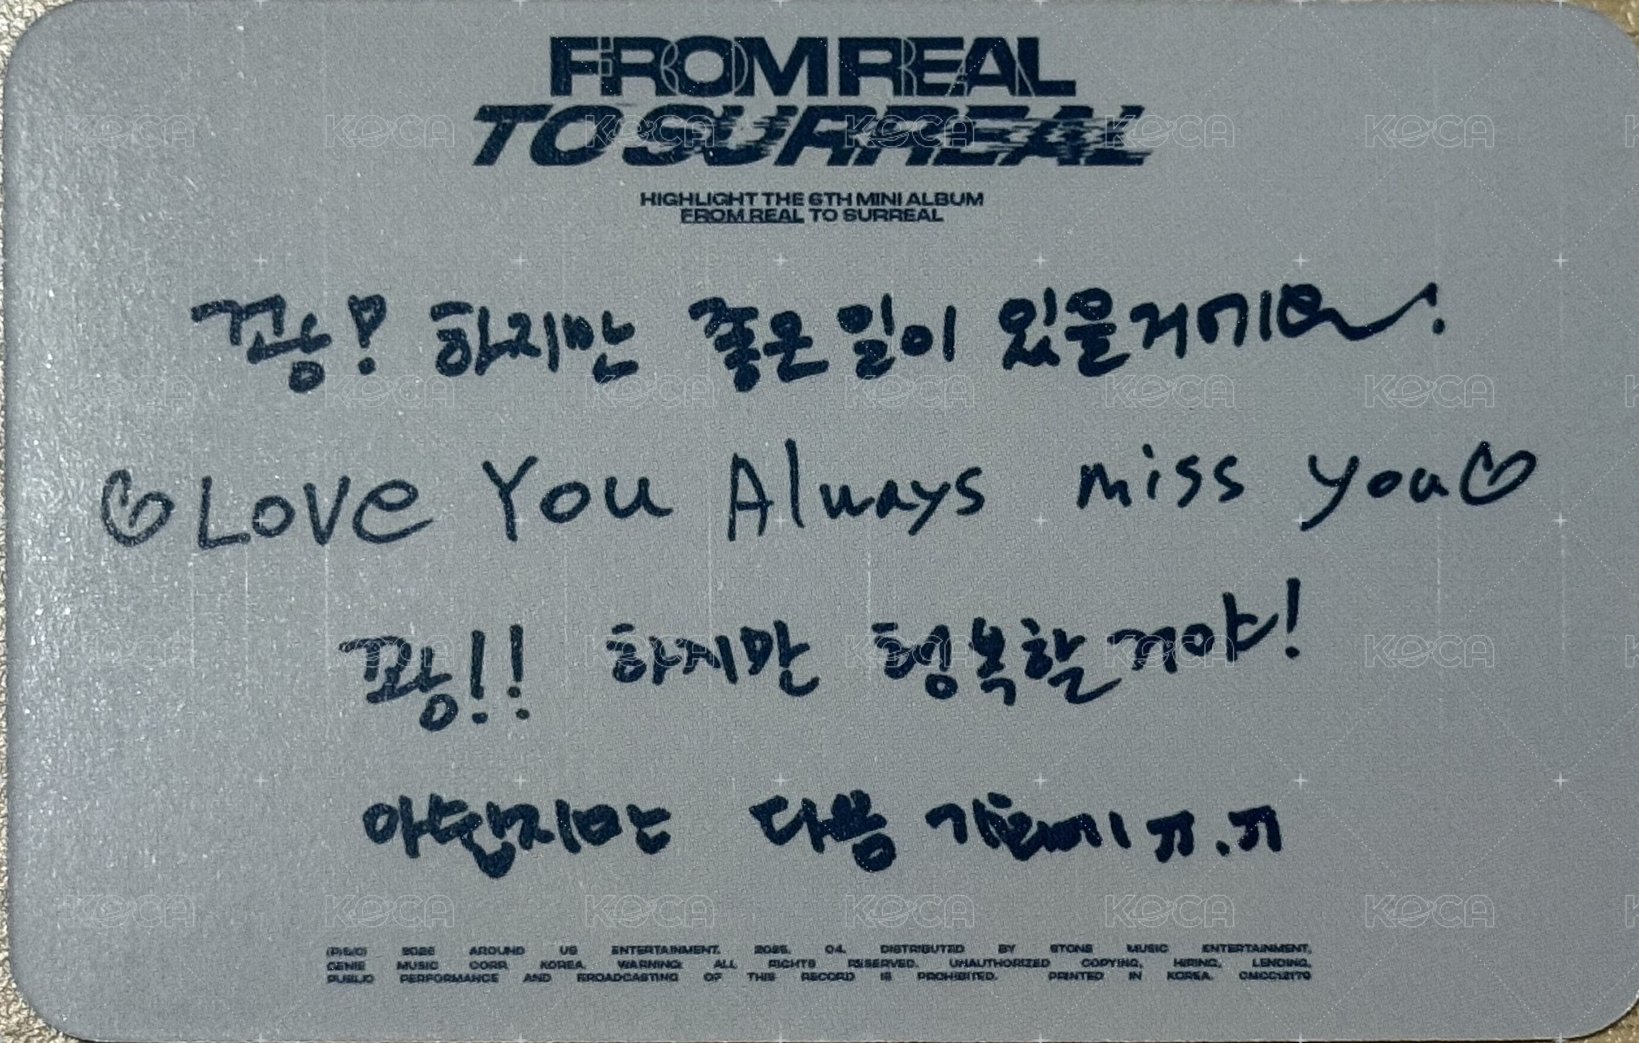 FROM REAL
TO SURREAL
HIGHLIGHT THE 6TH MINI ALBUM
FROM REAL TO SURREAL
꽝? 하지만 좋은 일이 있을거에요.
Love You Always miss you
꽝!! 하지만 행복할거야!
아쉽지만 다음 기회에 ㅠ.ㅠ
(P)&(C) 2025 AROUND US ENTERTAINMENT. 2025. 04. DISTRIBUTED BY STONE MUSIC ENTERTAINMENT,
GENIE MUSIC CORP. KOREA. WARNING: ALL RIGHTS RESERVED. UNAUTHORIZED COPYING, HIRING, LENDING,
PUBLIC PERFORMANCE AND BROADCASTING OF THIS RECORD IS PROHIBITED. PRINTED IN KOREA.
KOCA